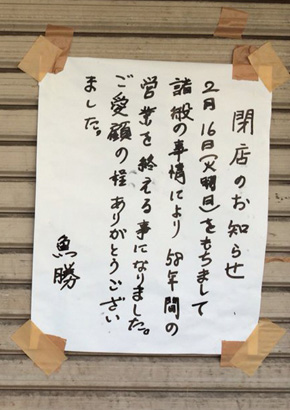 閉店のお知らせ
2月16日(火曜日)をもちまして
諸般の事情により 58年間の
営業を終える事になりました。
ご愛顧の程ありがとうござい
ました。
魚勝